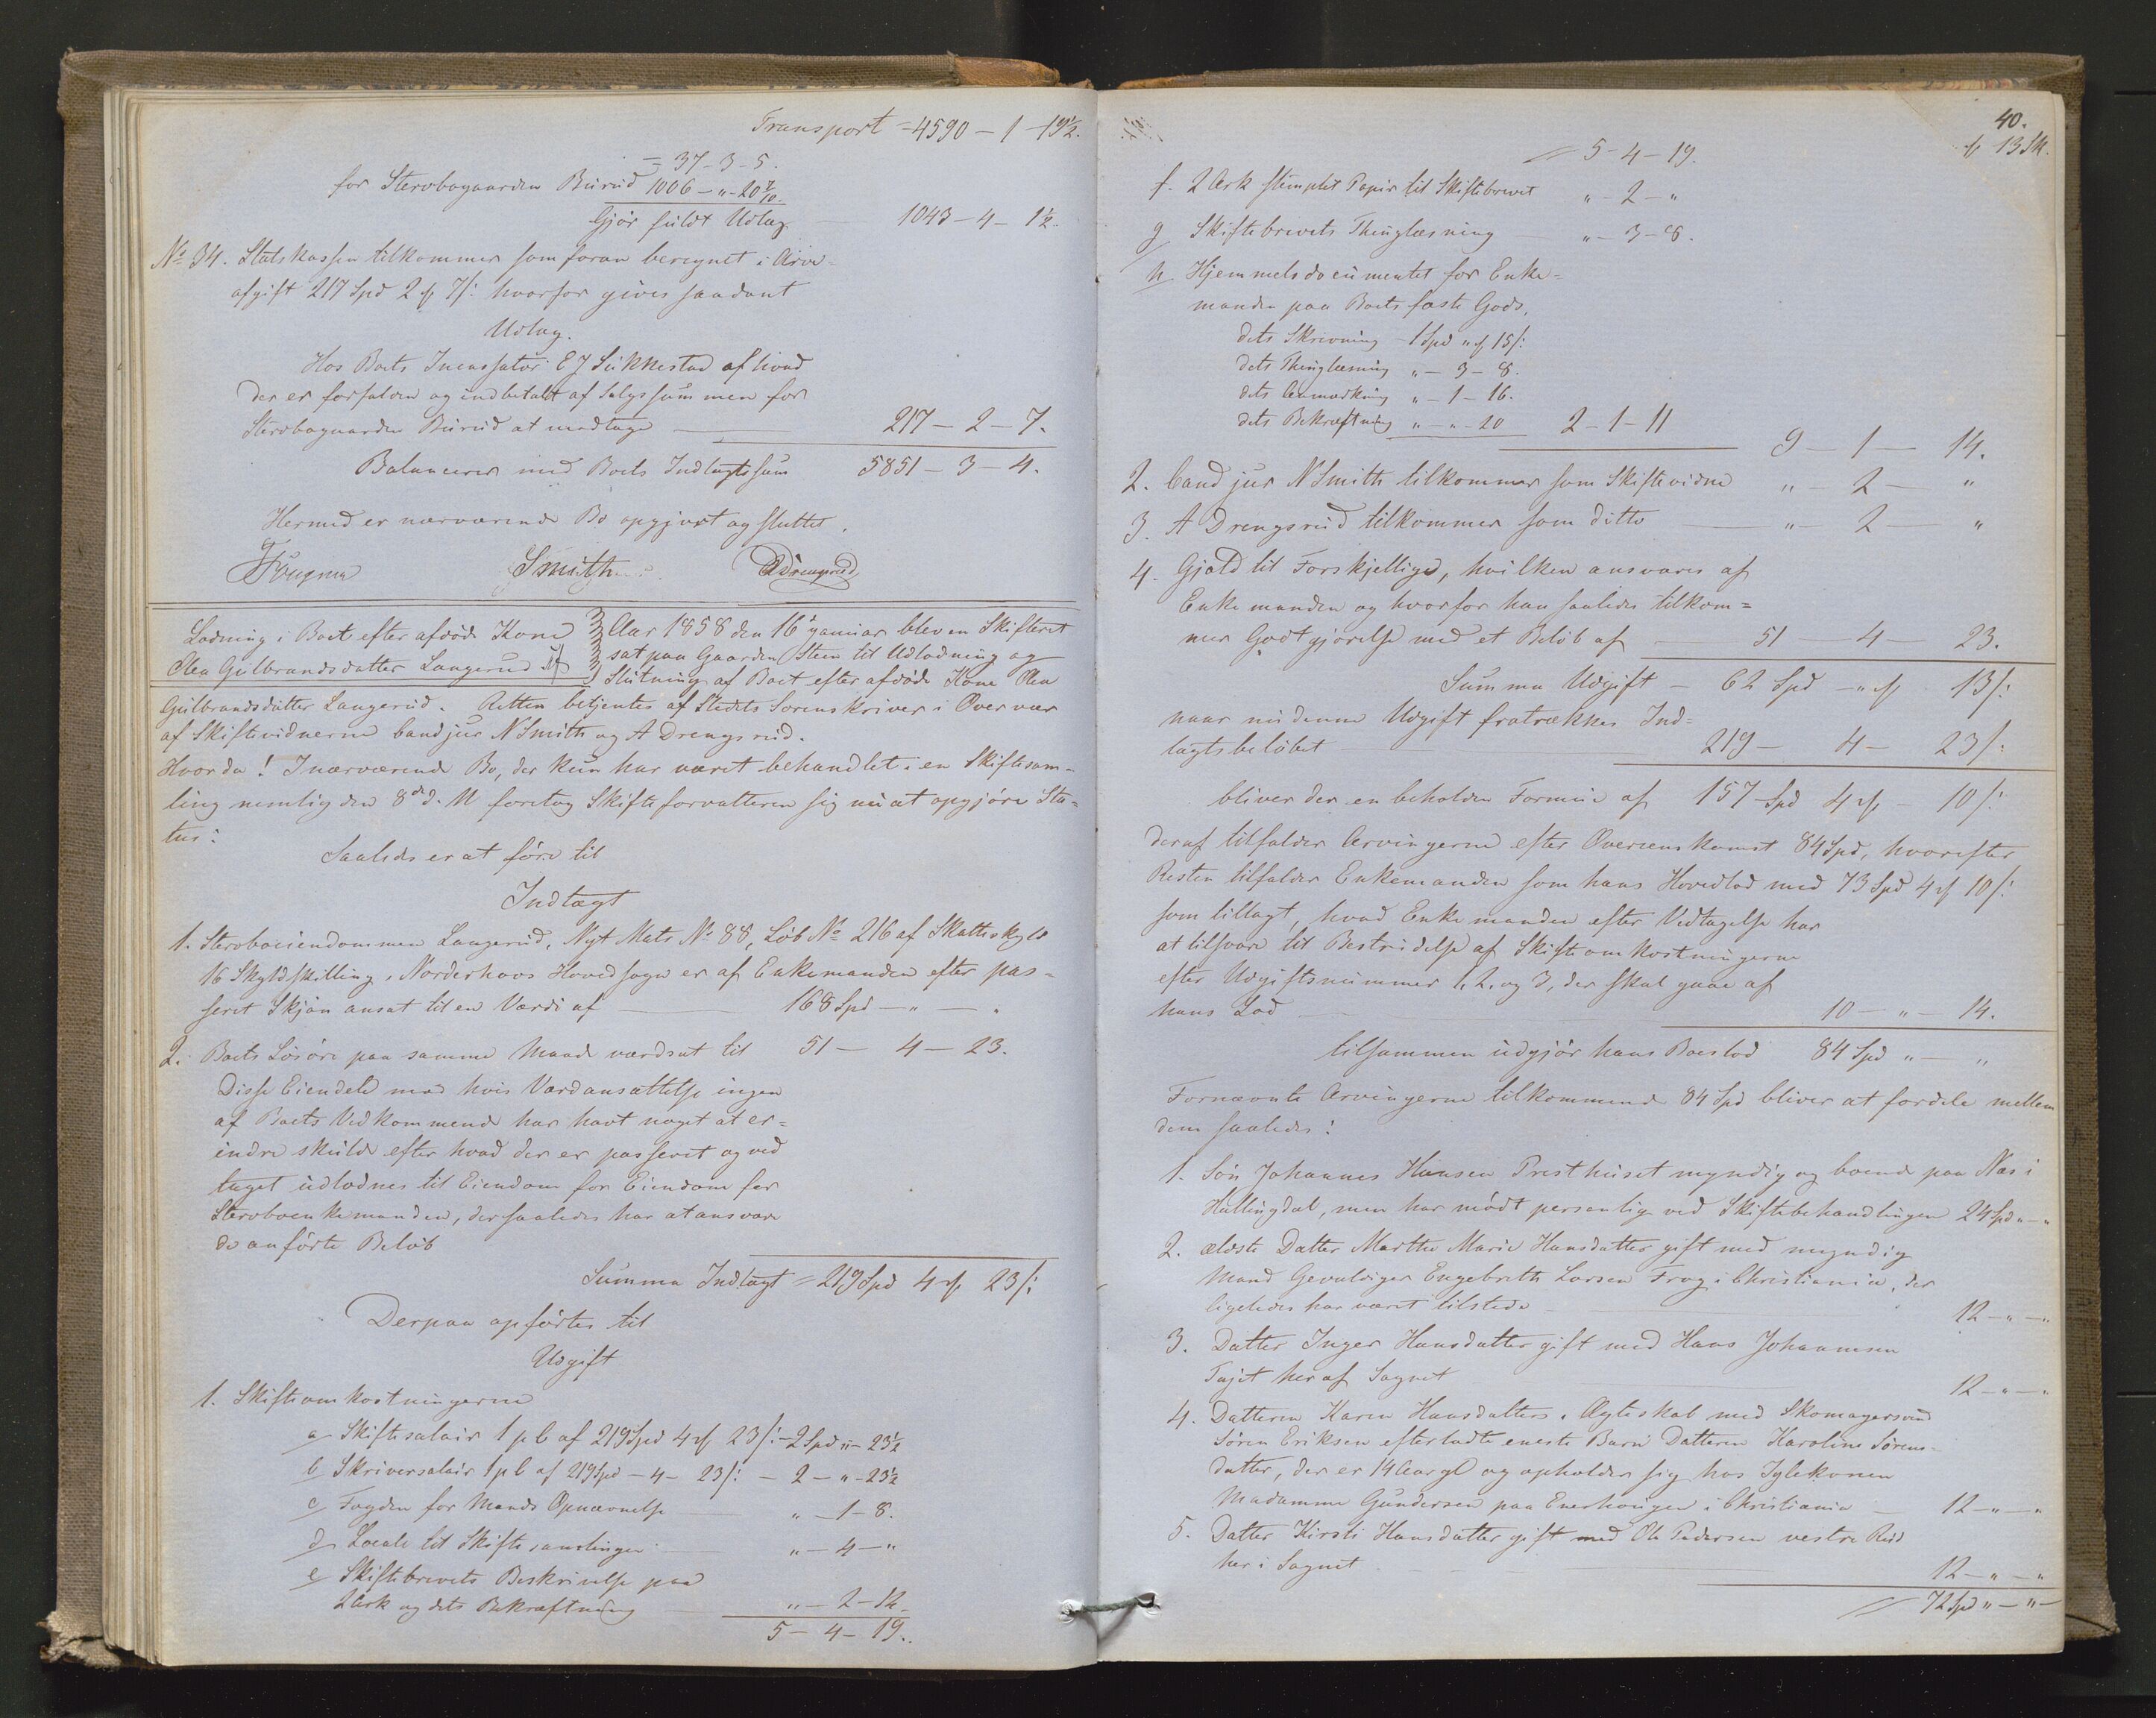 Transport = 4590 – 1 – 19½.
= 37 – 3 – 5.
for Stervbogaarden Burud 1006 – " – 20 7/10.
Gjør fuldt Udlæg – 1043 – 4 – 1½.
No 34. Statskassen tilkommer som foran beregnet i Arve-
afgift 217 Spd 2 ƒ 7 ß: hvorfor gives saadant
Udlæg.
Hos Boets Incassator E J Sukkestad af hvad
der er forfalden og indbetalt af Salgssummen for
Stervbogaarden Burud at modtage – 217 – 2 – 7.
Balancerer med Boets Indtægtssum 5851 – 3 – 4.
Hermed er nærværende Bo opgjort og sluttet.
Smith ADrengsrud
Lodning i Boet efter afdøde Kone
Olea Gulbrandsdatter Langerud
Aar 1858 den 16 Januar blev en Skifteret
sat paa Gaarden Steen til Udlodning og
Slutning af Boet efter afdøde Kone Olea
Gulbrandsdatter Langerud. Retten betjentes af Stedets Sorenskriver i Overvær
af Skiftevidnerne Cand jur N Smith og A Drengsrud.
Hvorda! I nærværende Bo, der kun har været behandlet i en Skiftesam-
ling nemlig den 8de d. M foretog Skifteforvalteren sig nu at opgjøre Sta-
tus:
Saaledes er at føre til
Indtægt
1. Stervboeiendommen Langerud, Nyt Mats No 88, Løb No 216 af Skatteskyld
16 Skyldskilling, Norderhovs Hovedsogn er af Enkemanden efter pas-
seret Skjøn ansat til en Værdi af – 168 Spd – " – "
2. Boets Løsøre paa samme Maade værdsat til 51 – 4 – 23.
Disse Eiendele mod hvis Værdansættelse ingen
af Boets Vedkommende har havt noget at er-
indre skulde efter hvad der er passeret og ved
taget udlodnes til Eiendom for Eiendom for
Stervboenkemanden, der saaledes har at ansvare
de anførte Beløb
Summa Indtægt = 219 Spd 4 ƒ 23 ß:
Derpaa opførtes til
Udgift
1. Skifteomkostningerne
a Skiftesalair 1 p C af 219 Spd 4 ƒ 23 ß: – 2 Spd " – 23½
b Skriversalair 1 p C af 219 Spd – 4 – 23 ß: – 2 – " – 23½
c Fogden for Mænds Opnævnelse – " – 1 – 8.
d Locale til Skiftesamlingen – " – 4 – "
e Skiftebrevets Beskrivelse paa
2 Ark og dets Bekræftning – " – 2 – 12.
5 – 4 – 19.
40.
13 Sk.
= 5 – 4 – 19.
f. 2 Ark stemplet Papir til Skiftebrevet " – 2 – "
g Skiftebrevets Thinglæsning – " – 3 – 8.
h Hjemmelsdocumentet for Enke-
manden paa Boets faste Gods,
dets Skrivning – 1 Spd " ƒ 15 ß:
dets Thinglæsning " – 3 – 8.
dets Anmærkning " – 1 – 16.
dets Bekræftning " – " – 20 2 – 1 – 11
9 – 1 – 14.
2. Cand jur N Smith tilkommer som Skiftevidne " – 2 – "
3. A Drengsrud tilkommer som ditto – " – 2 – "
4. Gjæld til Forskjellige, hvilken ansvares af
Enkemanden og hvorfor han saaledes tilkom-
mer Godtgjørelse med et Beløb af – 51 – 4 – 23.
Summa Udgift – 62 Spd – " ƒ 13 ß:
naar nu denne Udgift fratrækkes Ind-
tægtsbeløbet – 219 – 4 – 23 ß:
bliver der en beholden Formue af 157 Spd 4 ƒ – 10 ß:
deraf tilfalder Arvingerne efter Overenskomst 84 Spd, hvorefter
Resten tilfalder Enkemanden som hans Hovedlod med 73 Spd 4 ƒ 10 ß:
som tillagt, hvad Enkemanden efter Vedtagelse har
at tilsvare til Bestridelse af Skifteomkostningerne
efter Udgiftsnummer 1, 2, og 3, der skal gaae af
hans Lod – 10 – " – 14.
tilsammen udgjør hans Boeslod 84 Spd " – "
Fornævnte Arvingerne tilkommende 84 Spd bliver at fordele mellem
dem saaledes:
1. Søn Johannes Hansen Presthuset myndig og boende paa Næs i
Hallingdal, men har mødt personlig ved Skiftebehandlingen 24 Spd " – "
2. ældste Datter Marthe Marie Hansdatter gift med myndig
Mand Gevaldiger Engebreth Larsen Frog i Christiania, der
ligeledes har været tilstede – 12 – " – "
3. Datter Inger Hansdatter gift med Hans Johannesen
her af Sognet – 12 – " – "
4. Datteren Karen Hansdatters i Ægteskab med Skomagersvend
Søren Eriksen efterladte eneste Barn Datteren Karoline Sørens-
datter, der er 14 Aar gl og opholder sig hos Iglekonen
Madamme Gundersen paa Enerhougen i Christiania – 12 – " – "
5. Datter Kirsti Hansdatter gift med Ole Pedersen vestre Rud
her i Sognet – 12 – " – "
= 72 Spd " – " –